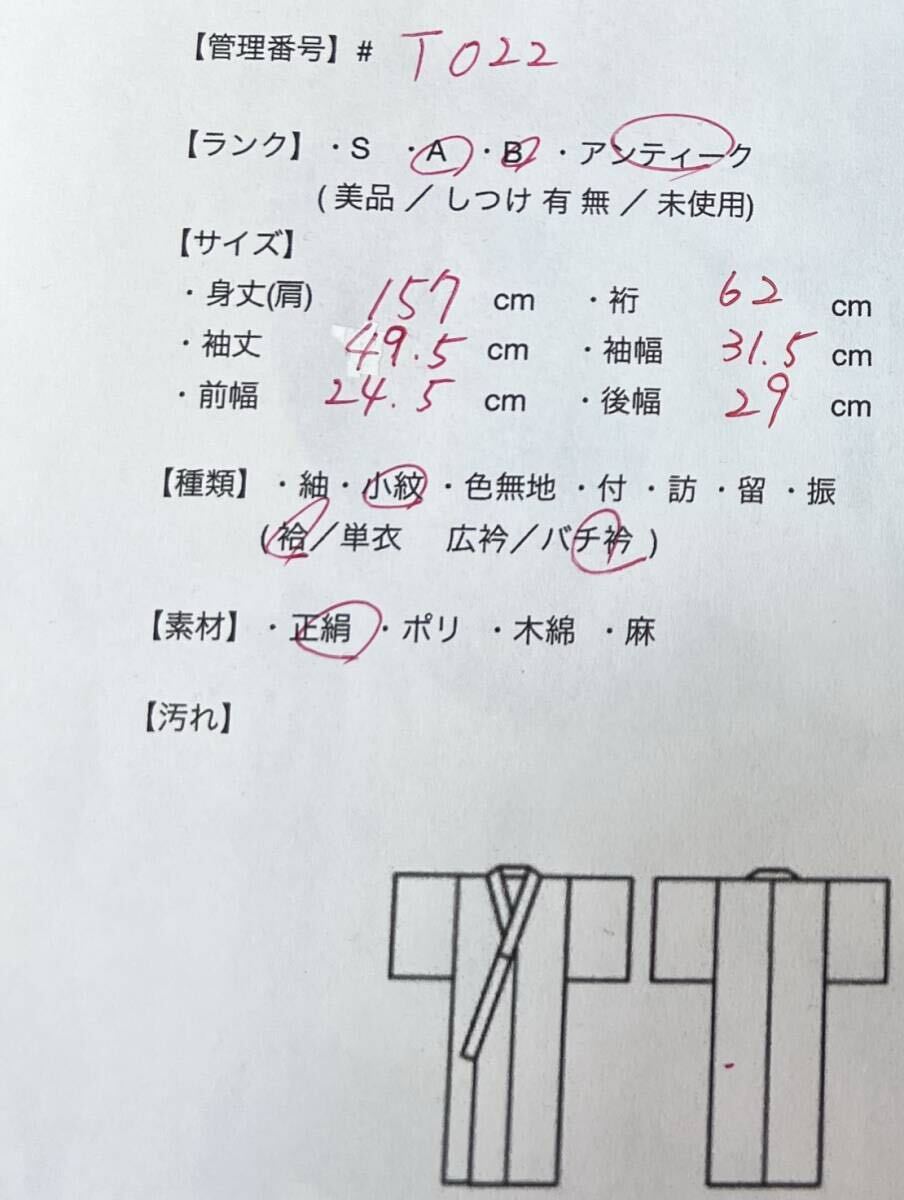 【管理番号】# T022
【ランク】・S ・A ・B ・アンティーク
(美品／しつけ 有 無／未使用)
【サイズ】
・身丈(肩) 157 cm ・裄 62 cm
・袖丈 49.5 cm ・袖幅 31.5 cm
・前幅 24.5 cm ・後幅 29 cm
【種類】・紬・小紋・色無地・付・訪・留・振
(袷／単衣 広衿／バチ衿)
【素材】・正絹・ポリ・木綿・麻
【汚れ】